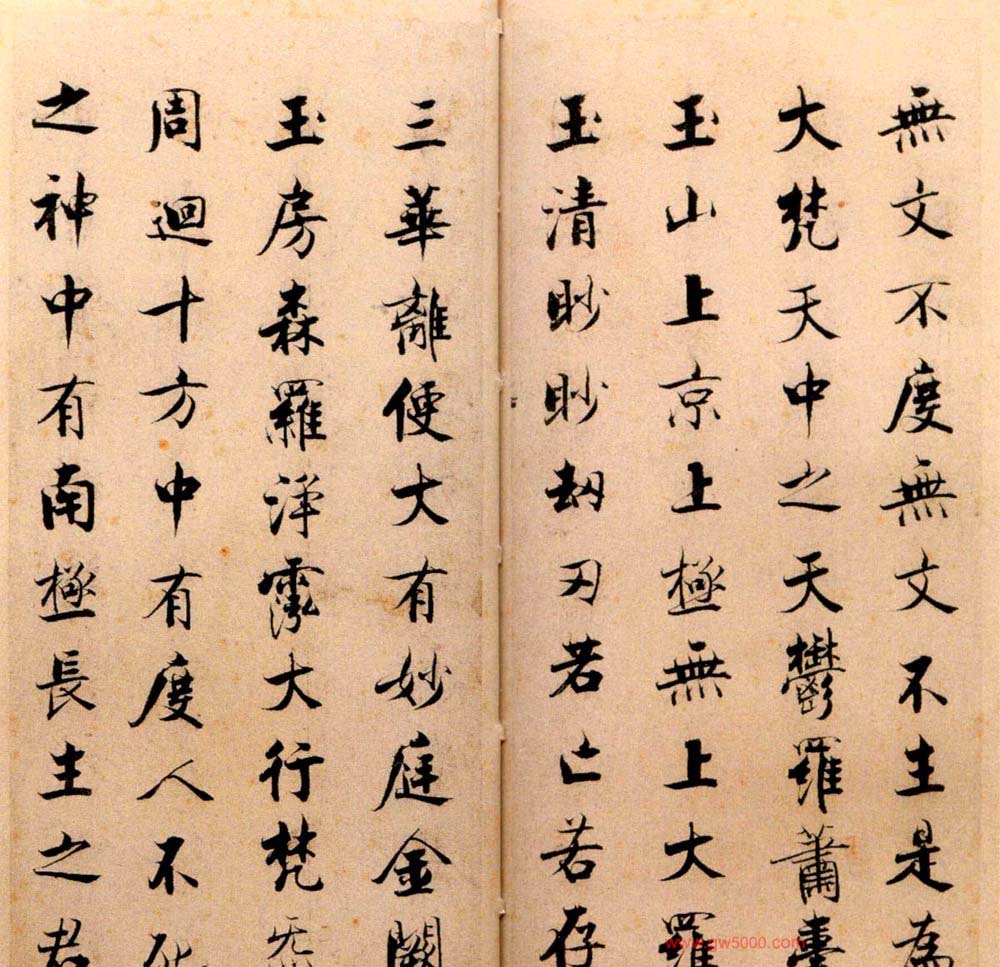 無文不度無文不生是為
大梵天中之天鬱羅蕭臺
玉山上京上極無上大羅
玉清眇眇劫刃若亡若存
三華離便大有妙庭金闕
玉房森羅淨霐大行梵炁
周迴十方中有度人不死
之神中有南極長生之君
www.gw5000.com